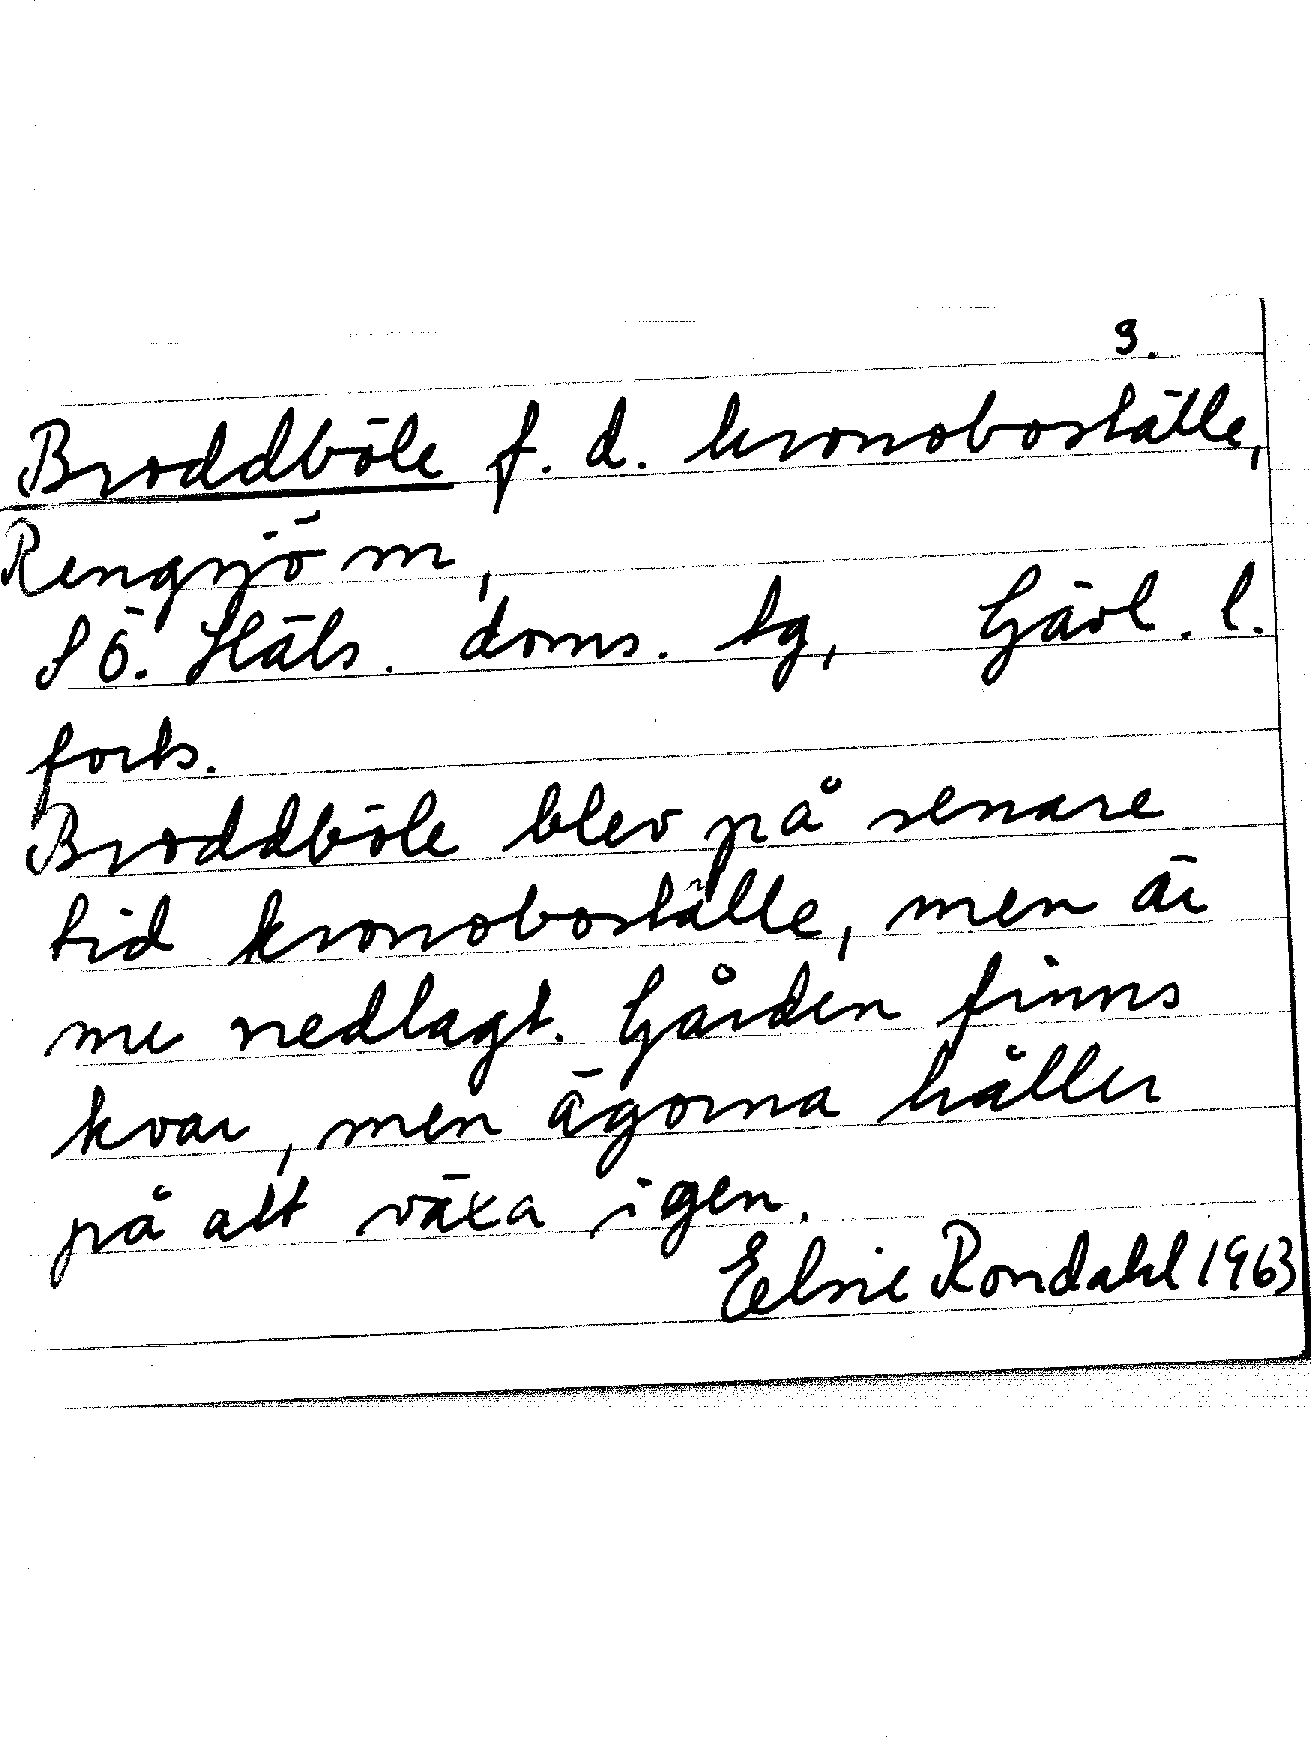 3.
Broddböle f. d. kronoboställe,
Rengsjö sn,
S Ö. Häls. doms. tg, Gävl. l.
forts.
Broddböle blev på senare
tid kronoboställe, men är
nu nedlagt. Gården finns
kvar, men ägorna håller
på att växa igen.
Elsie Rondahl 1963